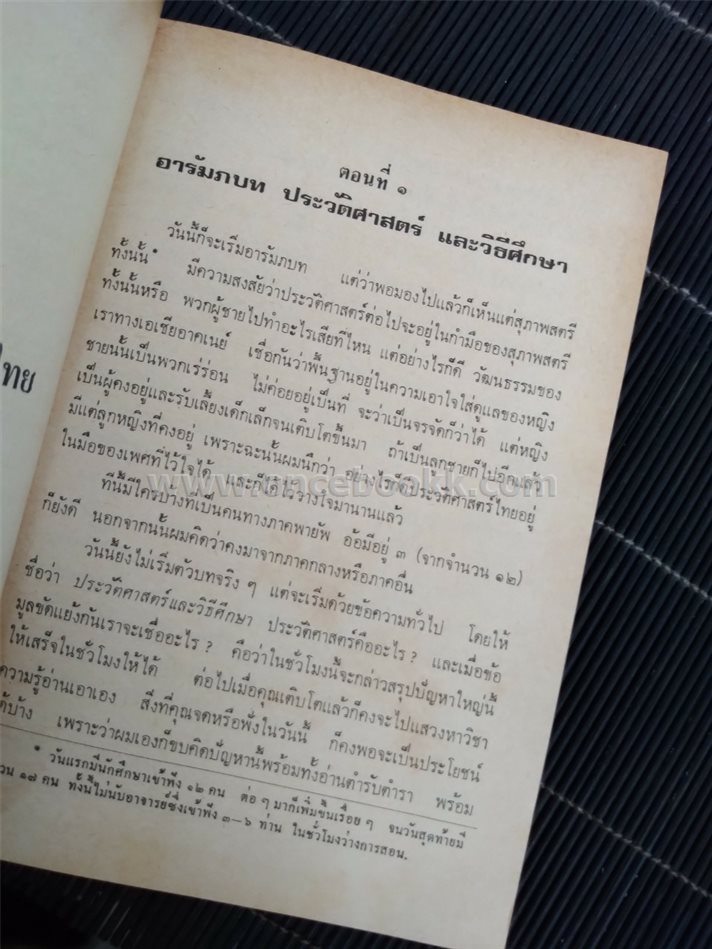 ไทย
ตอนที่ ๑
อารัมภบท ประวัติศาสตร์ และวิธีศึกษา
วันนี้ก็จะเริ่มอารัมภบท แต่ว่าพอมองไปแล้วก็เห็นแต่สุภาพสตรี
ทั้งนั้น* มีความสงสัยว่าประวัติศาสตร์ต่อไปจะอยู่ในกำมือของสุภาพสตรี
ทั้งนั้นหรือ พวกผู้ชายไปทำอะไรเสียที่ไหน แต่อย่างไรก็ดี วัฒนธรรมของ
เราทางเอเซียอาคเนย์ เชื่อกันว่าพื้นฐานอยู่ในความเอาใจใส่ดูแลของหญิง
ชายนั้นเป็นพวกเร่ร่อน ไม่ค่อยอยู่เป็นที่ จะว่าเป็นจรจัดก็ว่าได้ แต่หญิง
เป็นผู้คงอยู่และรับเลี้ยงเด็กเล็กจนเติบโตขึ้นมา ถ้าเป็นลูกชายก็ไปอีกแล้ว
มีแต่ลูกหญิงที่คงอยู่ เพราะฉะนั้นผมนึกว่า อย่างไรก็ดีประวัติศาสตร์ไทยอยู่
ในมือของเพศที่ไว้ใจได้ และก็ได้ไว้วางใจมานานแล้ว
ทีนี้มีใครบ้างที่เป็นคนทางภาคพายัพ อ้อมีอยู่ ๓ (จากจำนวน ๑๒)
ก็ยังดี นอกจากนั้นผมคิดว่าคงมาจากภาคกลางหรือภาคอื่น
วันนี้ยังไม่เริ่มตัวบทจริง ๆ แต่จะเริ่มด้วยข้อความทั่วไป โดยให้
ชื่อว่า ประวัติศาสตร์และวิธีศึกษา ประวัติศาสตร์คืออะไร? และเมื่อข้อ
มูลขัดแย้งกันเราจะเชื่ออะไร? คือว่าในชั่วโมงนี้จะกล่าวสรุปปัญหาใหญ่นี้
ให้เสร็จในชั่วโมงให้ได้ ต่อไปเมื่อคุณเติบโตแล้วก็คงจะไปแสวงหาวิชา
ความรู้อ่านเอาเอง สิ่งที่คุณจดหรือฟังในวันนี้ ก็คงพอจะเป็นประโยชน์
ได้บ้าง เพราะว่าผมเองก็ขบคิดปัญหานี้พร้อมทั้งอ่านตำรับตำรา พร้อม
* วันแรกมีนักศึกษาเข้าฟัง ๑๒ คน ต่อ ๆ มาก็เพิ่มขึ้นเรื่อย ๆ จนวันสุดท้ายมี
วน ๑๘ คน ทั้งนี้ไม่นับอาจารย์ซึ่งเข้าฟัง ๓—๖ ท่าน ในชั่วโมงว่างการสอน.
www.oncebookk.com